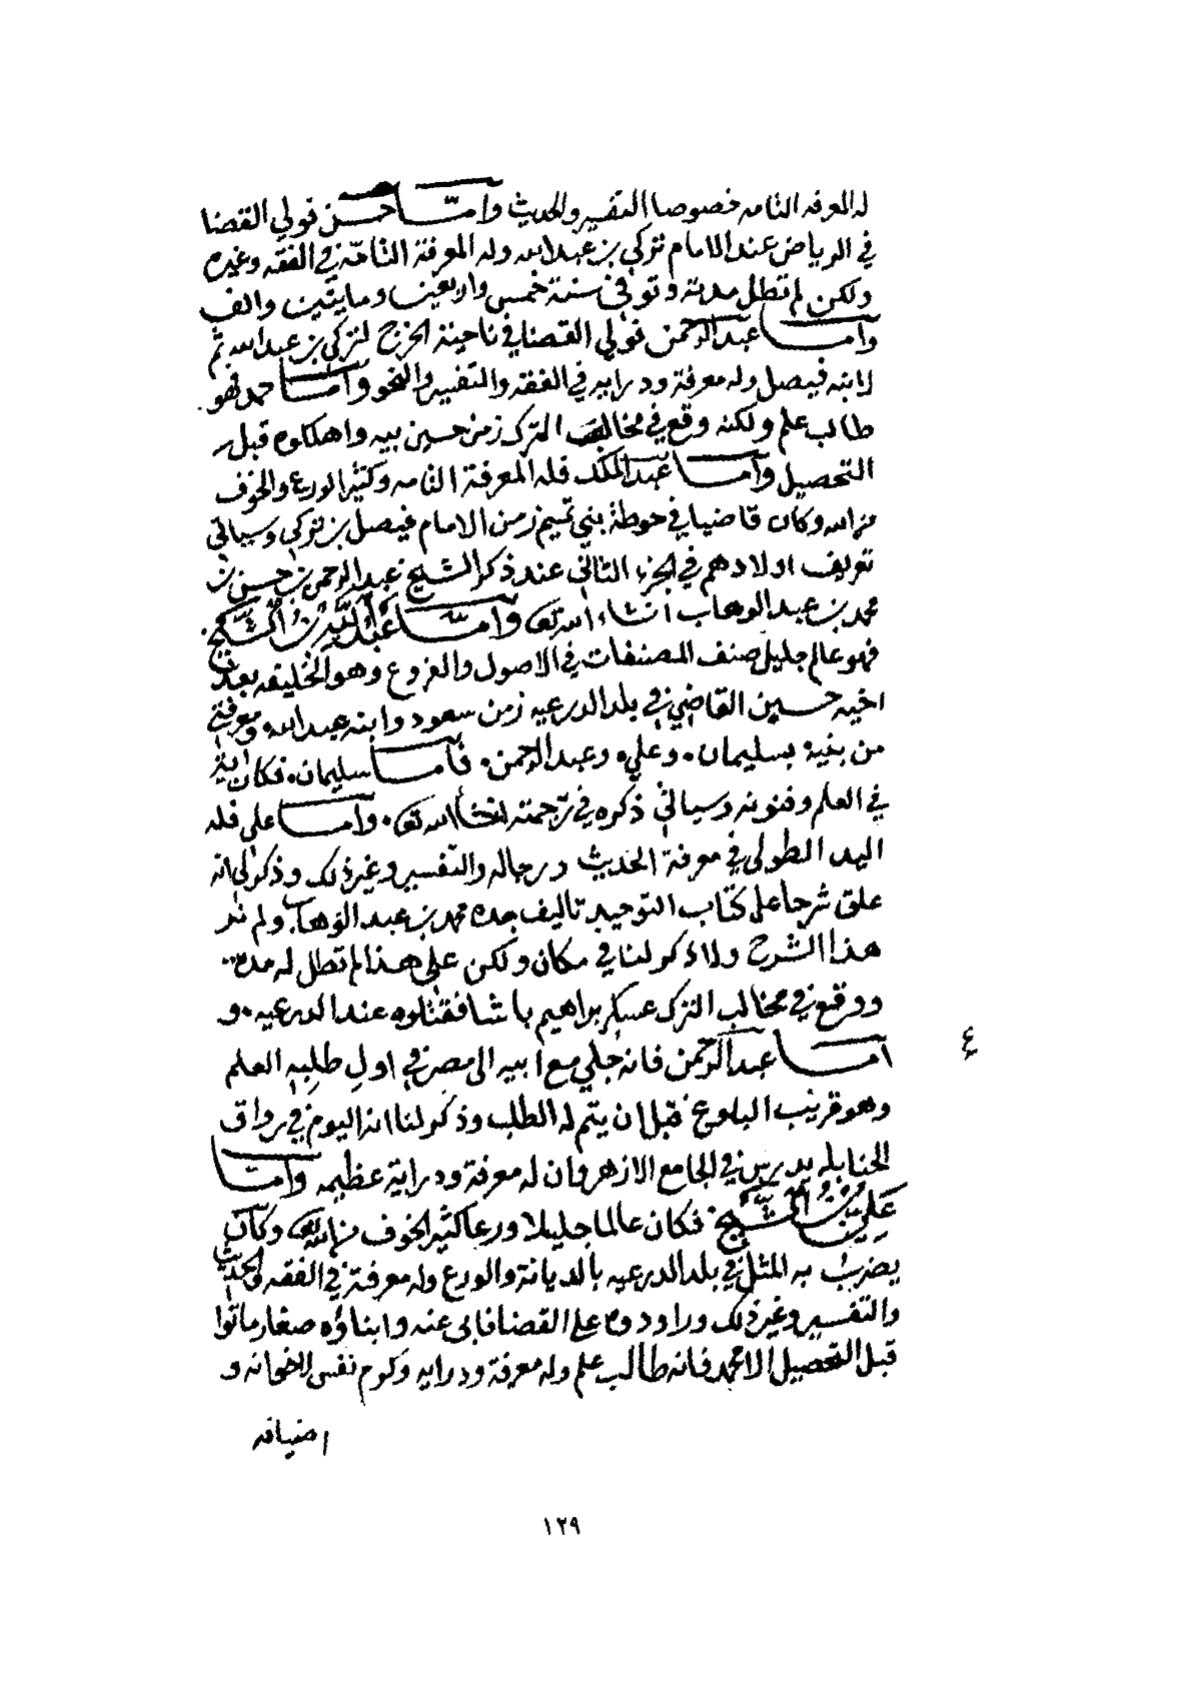 له المعرفه التامه خصوصا التفسير والحديث وامّا حسن فولي القضا
في الرياض عند الامام تركي بن عبد الله وله المعرفة التامّة في الفقه وغيره
ولكن لم تطل مدته وتوفي سنة خمس واربعين ومايتين والف
وامّا عبد الرحمن فولي القضا في ناحية الخرج لتركي بن عبد الله ثم
لابنه فيصل وله معرفة ودرايه في الفقه والتفسير والنحو وامّا حمد فهو
طالب علم ولكنه وقع في مخالب الترك زمن حسين بيه واهلكوه قبل
التحصيل وامّا عبد الملك فله المعرفة التامه وكثير الورع والخوف
من الله وكان قاضيا في حوطة بني تميم زمن الامام فيصل بن تركي وسياتي
تعريف اولادهم في الجزء الثاني عند ذكر الشيخ عبد الرحمن بن حسن بن
محمد بن عبد الوهاب انشاء الله تعا وامّا عَبْدُ اللَّهِ بْنُ الشَّيخ
فهو عالم جليل صنف المصنفات في الاصول والفروع وهو الخليفه بعد
اخيه حسين القاضي في بلد الدرعيه زمن سعود وابنه عبد الله ومعرفتي
من بنيه بسليمان وعلي وعبد الرحمن فامّا سليمان فكان آية
في العلم وفنونه وسياتي ذكره في ترجمته انشا الله تعا وامّا علي فله
اليد الطولى في معرفة الحديث ورجاله والتفسير وغير ذلك وذكر لي انه
علق شرحا على كتاب التوحيد تاليف جده محمد بن عبد الوهاب ولم نر
هذا الشرح ولا ذكر لنا في مكان ولكن علي هذا لم تطل له مده
ووقع في مخالب الترك عسكر ابراهيم باشا فقتلوه عند الدرعيه و
٤
امّا عبد الرحمن فانه جلي مع ابيه الى مصر في اول طلبه العلم
وهو قريب البلوغ قبل ان يتم له الطلب وذكر لنا انه اليوم في رواق
الحنابله يدرس في الجامع الازهر وان له معرفة ودراية عظيمه وامّا
عَلِيّ بْنُ الشَّيخ فكان عالما جليلا ورعا كثير الخوف من الله تعا وكان
يضرب به المثل في بلد الدرعيه بالديانة والورع وله معرفة في الفقه والحديث
والتفسير وغير ذلك وراودوه على القضا فابى عنه وابناؤه صغار ماتوا
قبل التحصيل الا محمد فانه طالب علم وله معرفة ودرايه وكرم نفس لاخوانه و
اضيافه
١٢٩